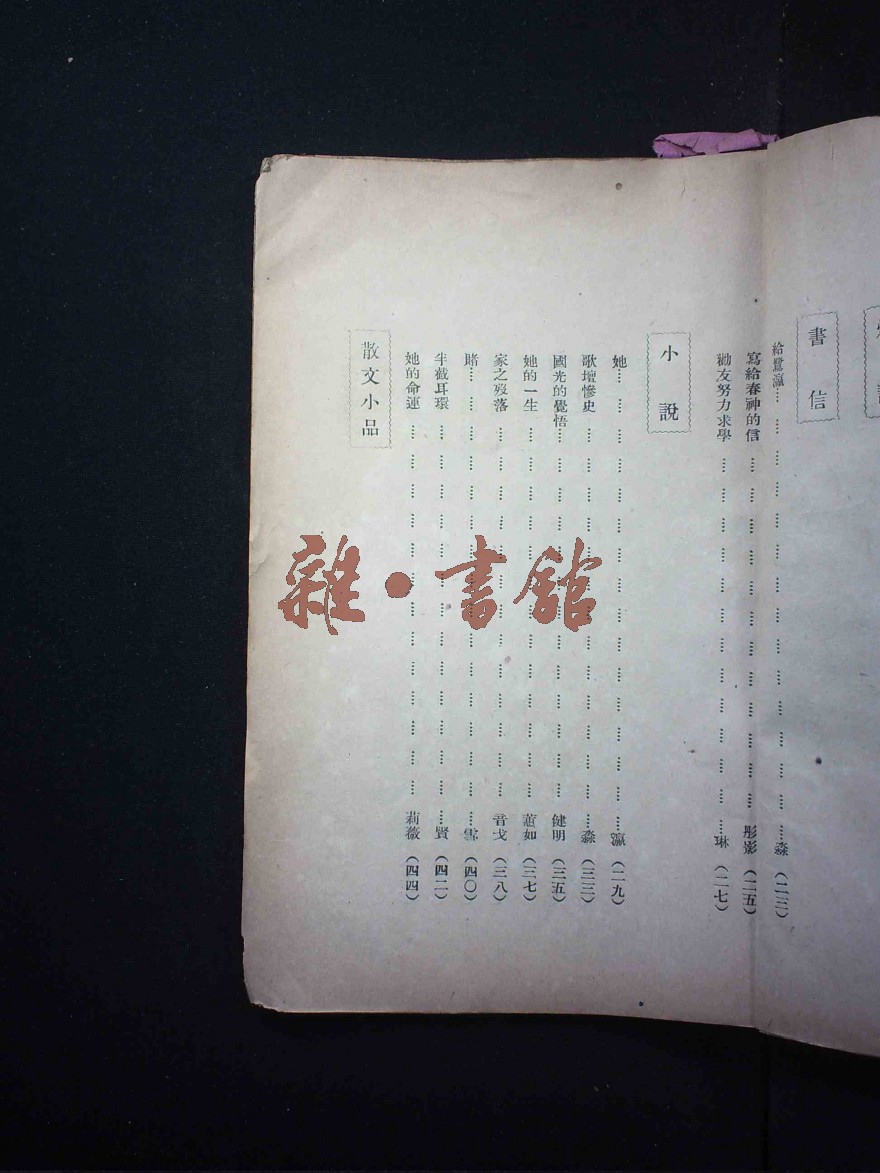 書信
給鷺瀛⋯⋯森（二三）
寫給春神的信⋯⋯彤影（二五）
勸友努力求學⋯⋯琳（二七）
小說
她⋯⋯瀛（二九）
歌壇慘史⋯⋯森（三三）
國光的覺悟⋯⋯健明（三五）
她的一生⋯⋯蕾如（三七）
家之歿落⋯⋯音戈（三八）
賭⋯⋯雪（四〇）
半截耳環⋯⋯賢（四二）
她的命運⋯⋯莉薇（四四）
散文小品
雜·書館